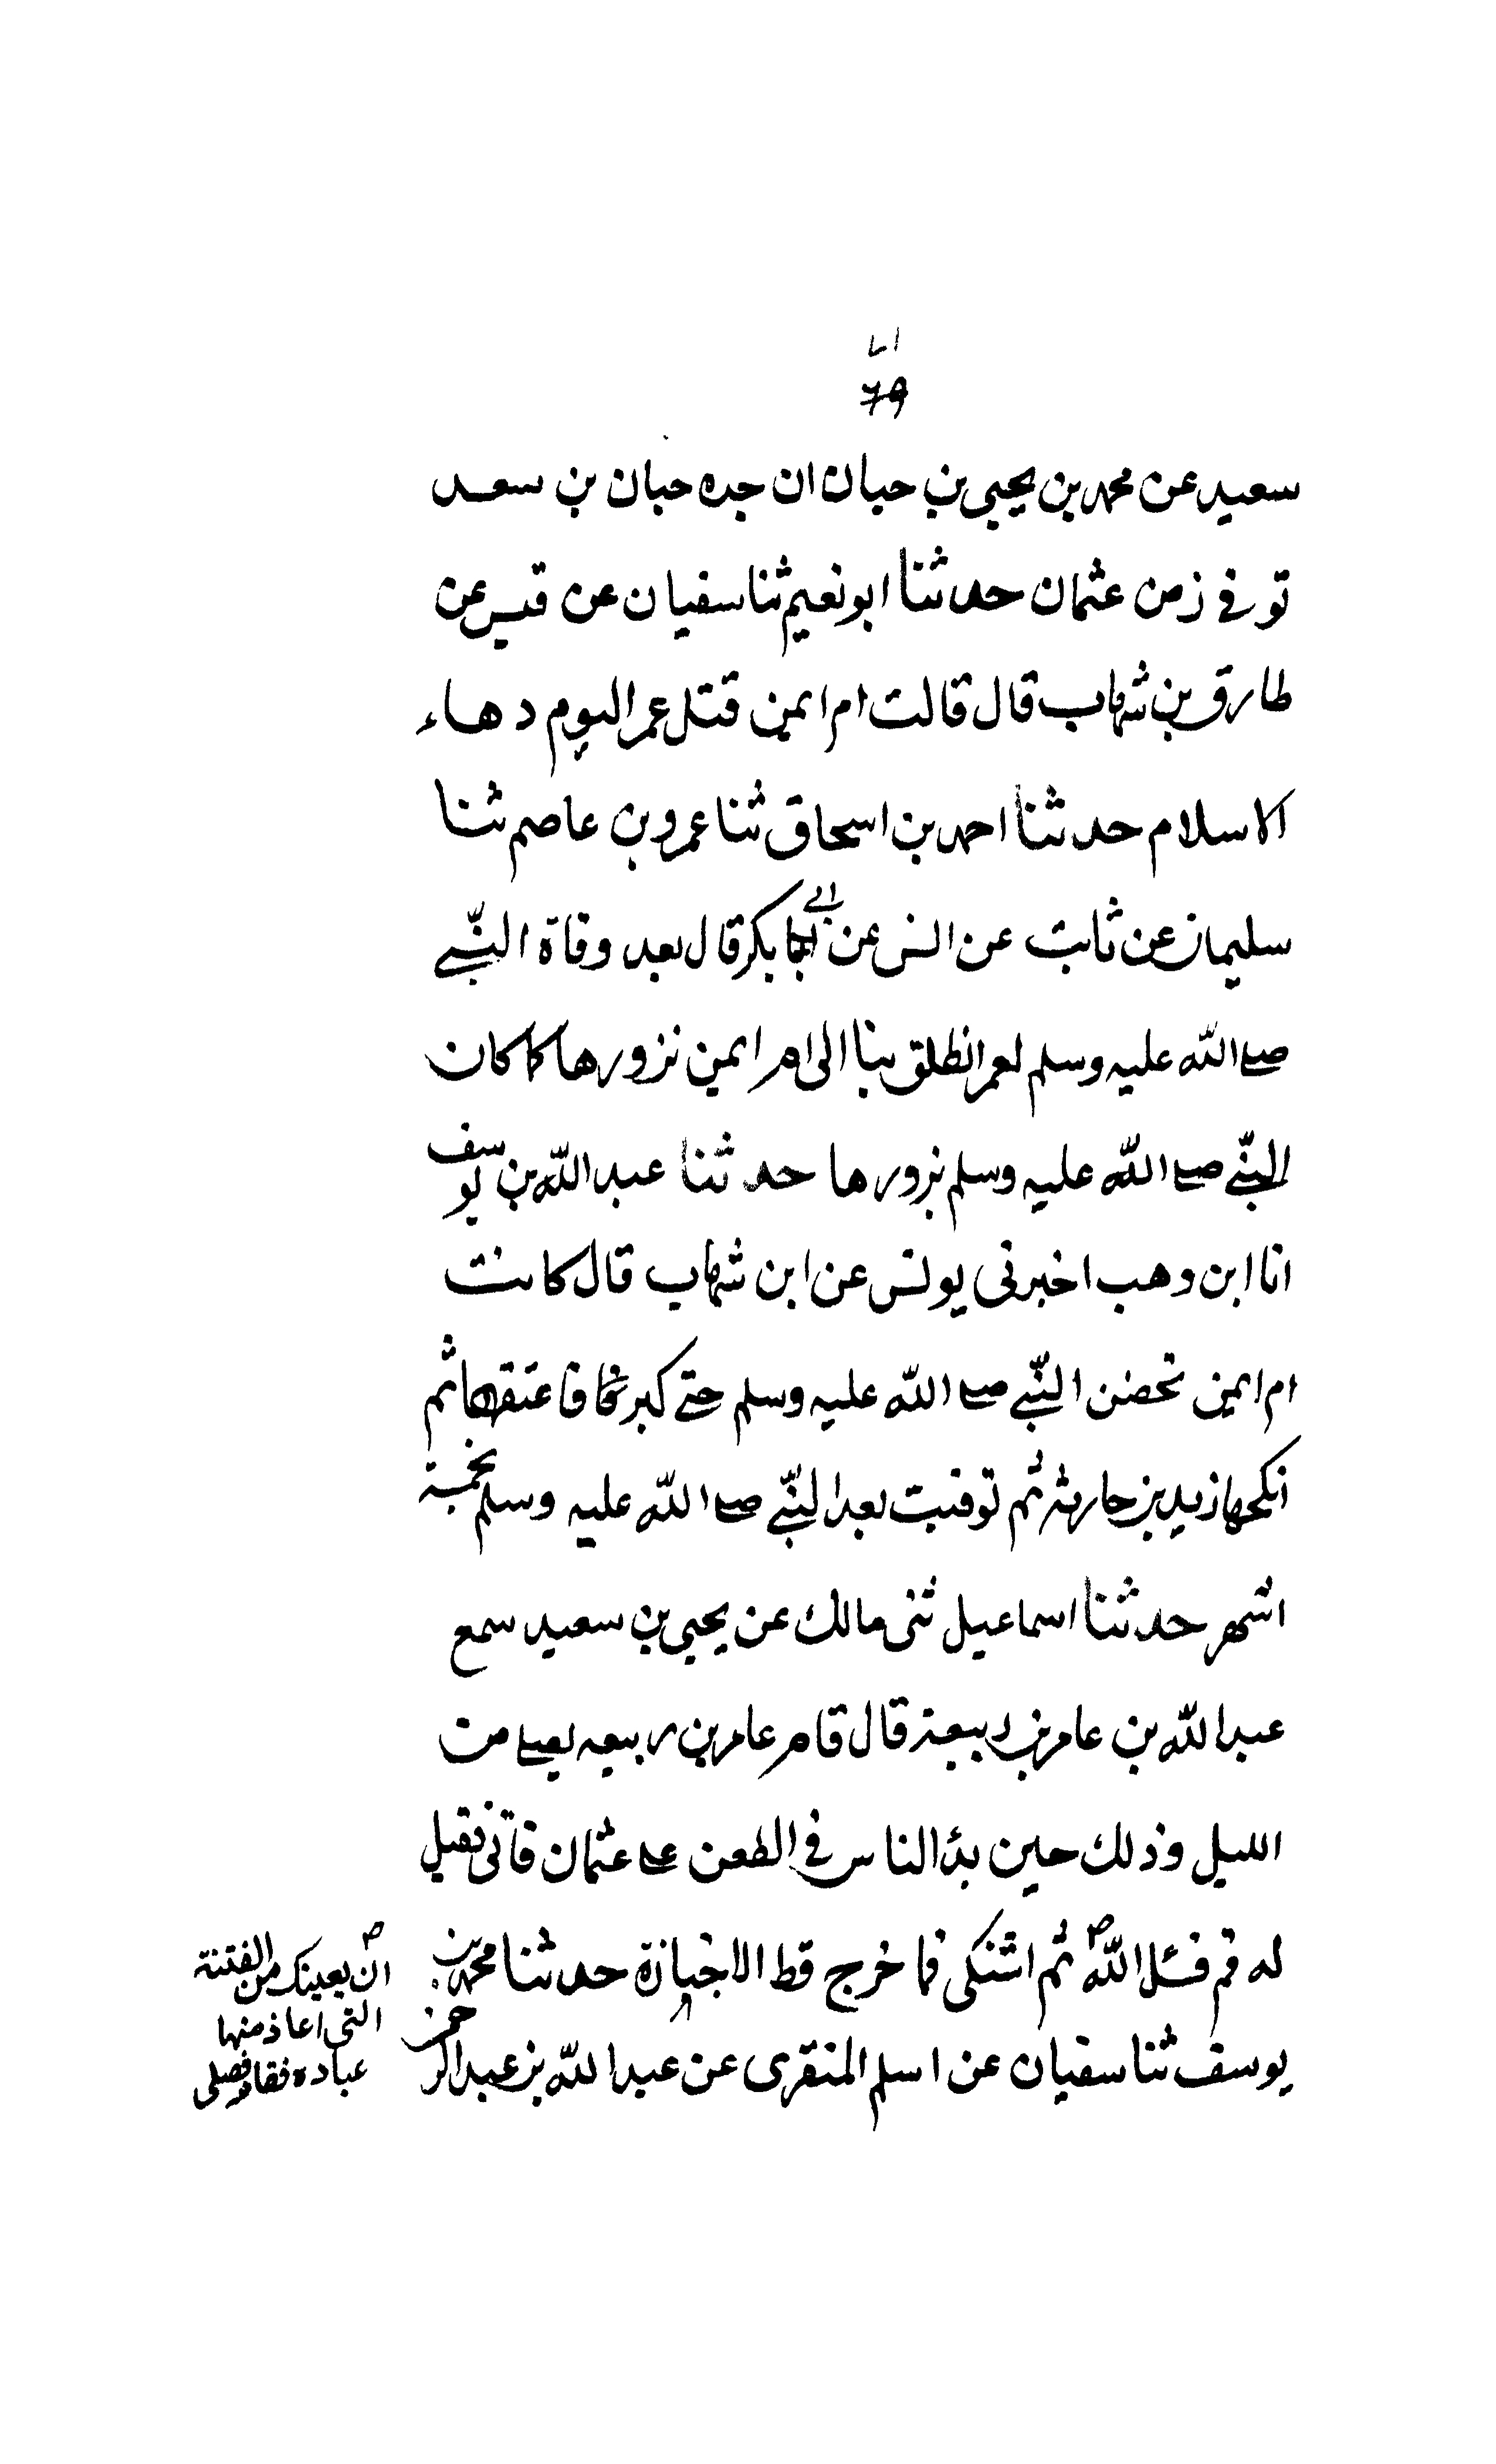 79
سعيد عن محمد بن يحيى بن حبان ان جده حبان بن سعد
توفي زمن عثمان حدثنا ابو نعيم ثنا سفيان عن قيس عن
طارق بن شهاب قال قالت ام ايمن قتل عمر اليوم دهاء
الاسلام حدثنا احمد بن اسحاق ثنا عمرو بن عاصم ثنا
سليمان عن ثابت عن انس عن ابي بكر قال بعد وفاة النبي
صلى الله عليه وسلم لعمر انطلق بنا الى ام ايمن نزورها كما كان
النبي صلى الله عليه وسلم يزورها حدثنا عبد الله بن يوسف
انا ابن وهب اخبرني يونس عن ابن شهاب قال كانت
ام ايمن تحضن النبي صلى الله عليه وسلم حتى كبر فاعتقها ثم
انكحها زيد بن حارثه ثم توفيت بعد النبي صلى الله عليه وسلم بخمسة
اشهر حدثنا اسماعيل ثنى مالك عن يحيى بن سعيد سمع
عبد الله بن عامر بن ربيعة قال قام عامر بن ربيعه يصلى من
الليل وذلك حين بدأ الناس في الطعن على عثمان فاتى فقيل
له قم فسئل الله ثم اشتكى فما خرج قط الا جنازة حدثنا محمد بن
يوسف ثنا سفيان عن اسلم المنقرى عن عبد الله بن عبد الرحمن
ان يعيذك من الفتنة
التي اعاذ منها
عباده فقام فصلى